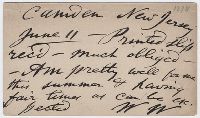 Camden New Jersey
June 11 – Printed slip
rec'd – much obliged –
– Am pretty well for me
this summer & having
fair times as can be ex-
pected W W